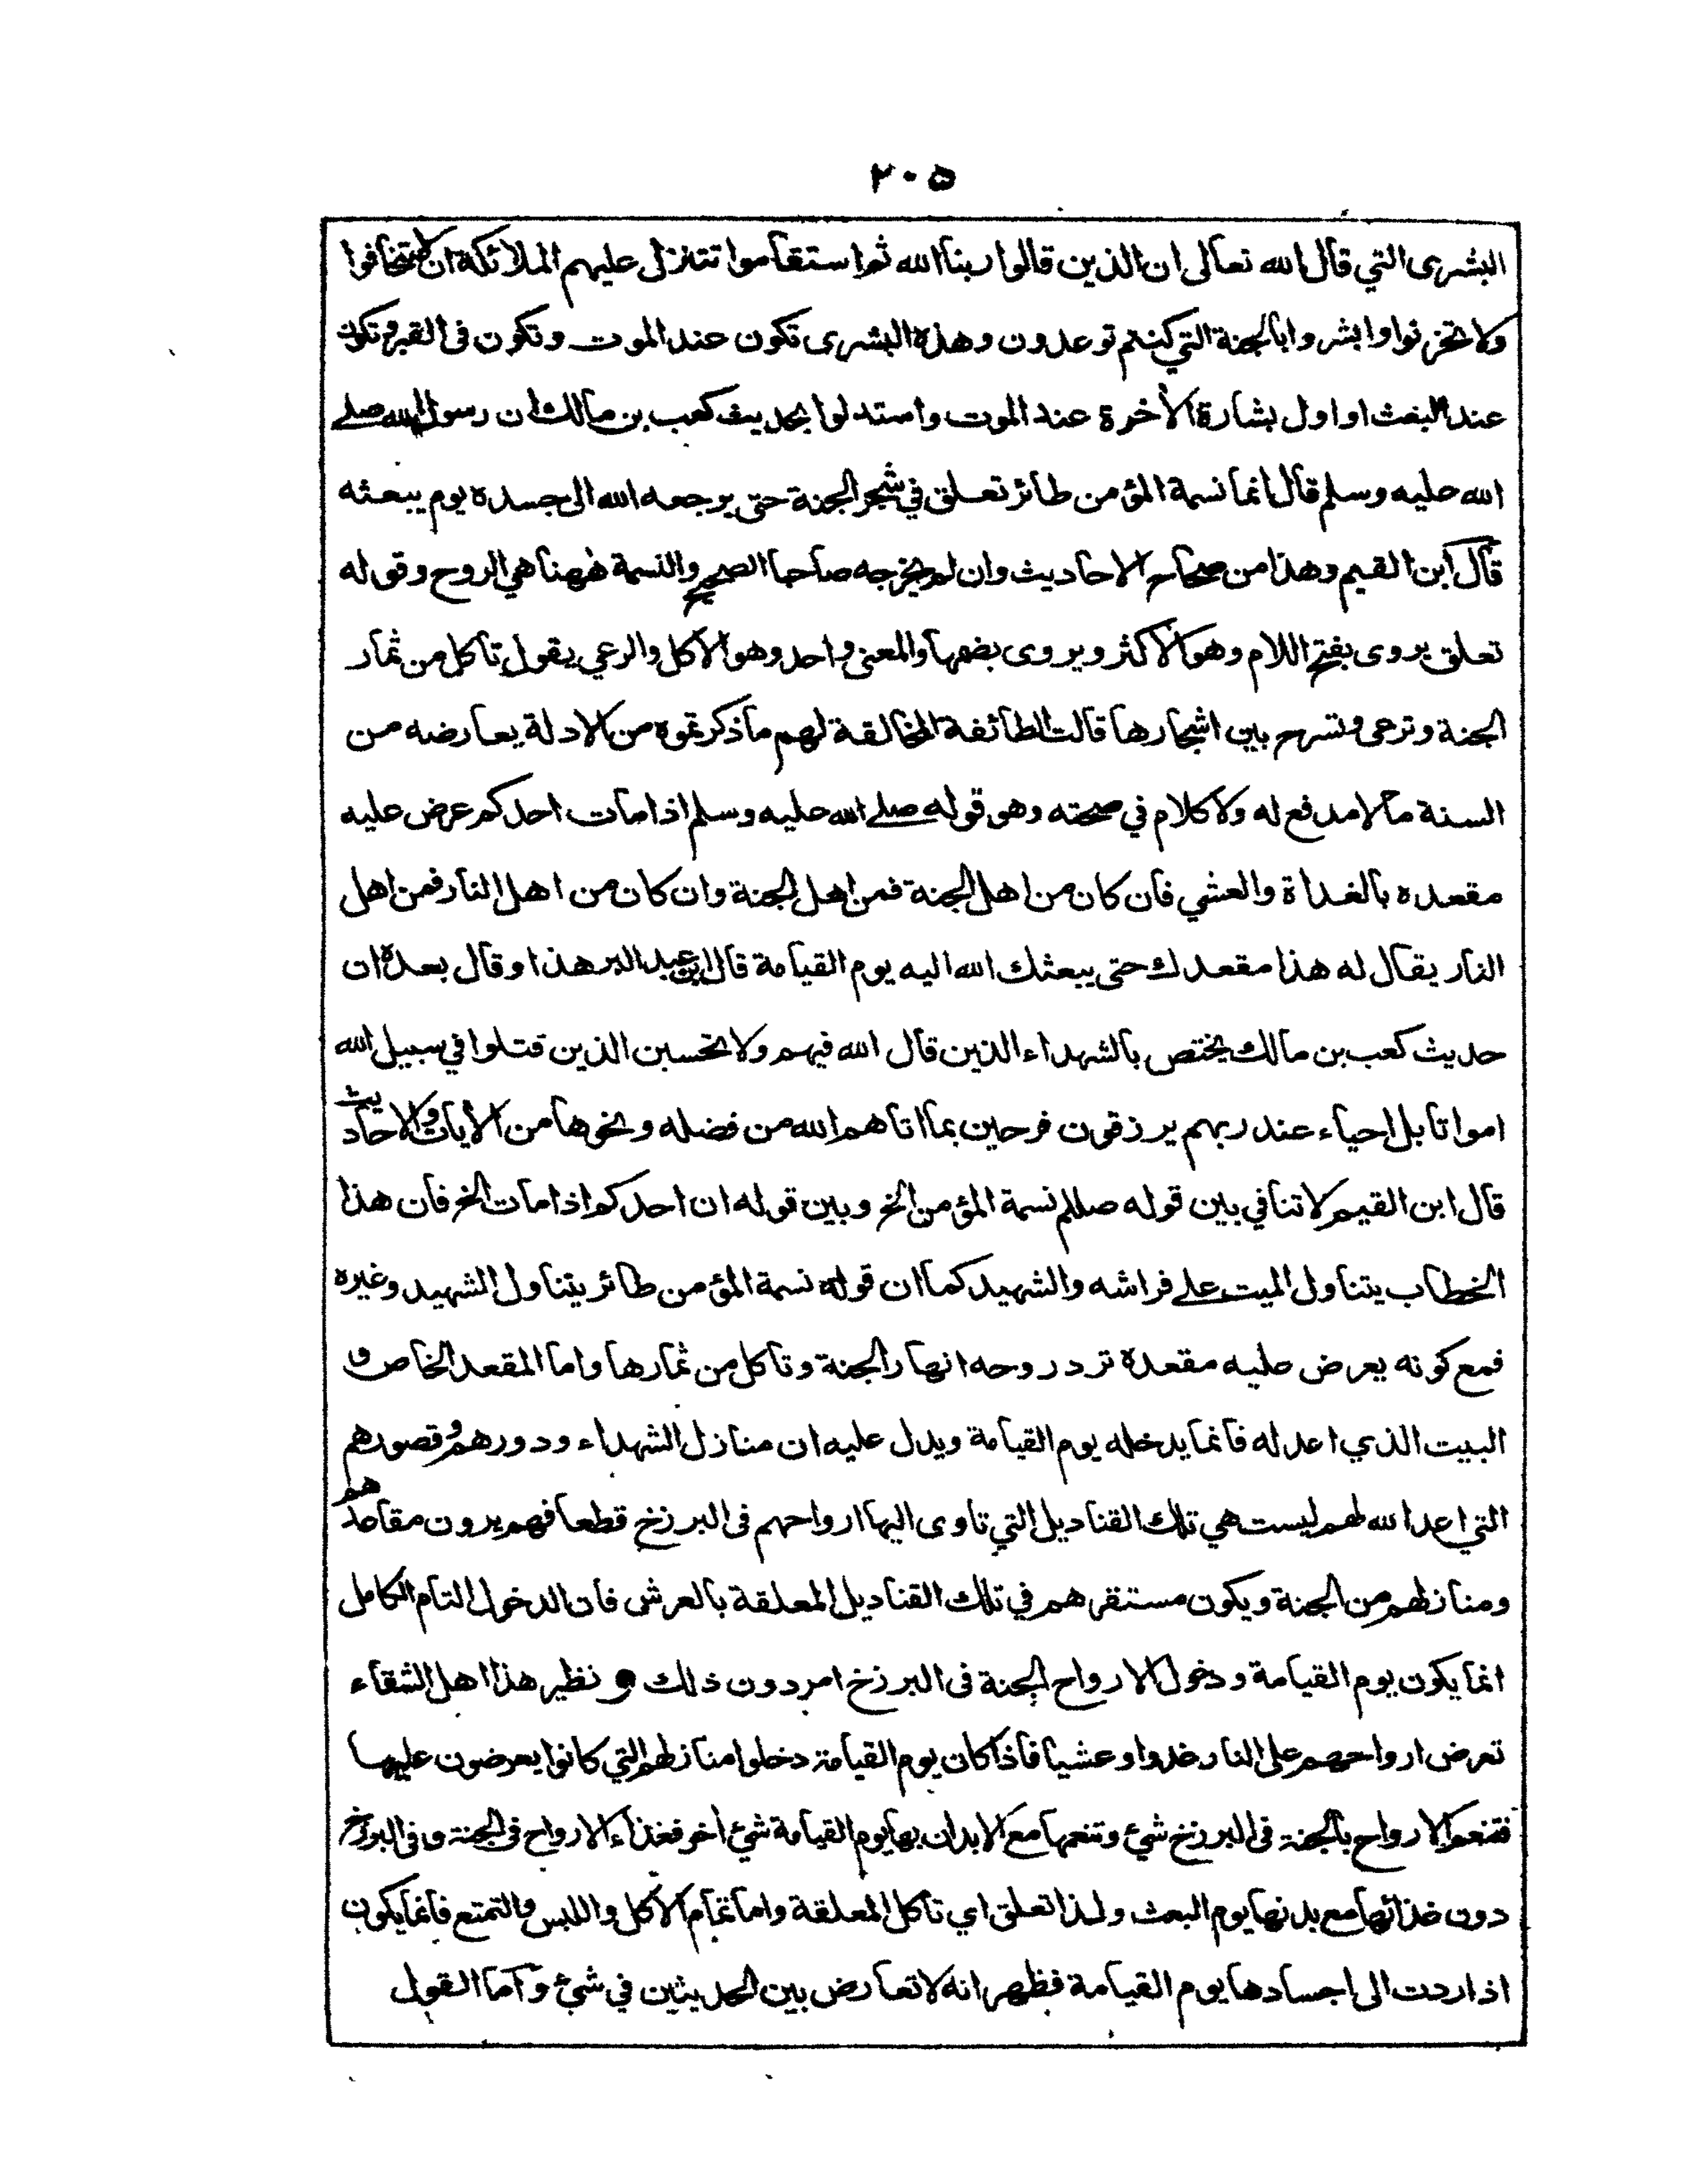 ٢٠٥
البشرى التي قال الله تعالى ان الذين قالوا ربنا الله ثم استقاموا تتنزل عليهم الملائكة ان لا تخافوا
ولا تحزنوا وابشروا بالجنة التي كنتم توعدون وهذه البشرى تكون عند الموت وتكون فى القبر وتكون
عند البعث او اول بشارة الأخرة عند الموت واستدلوا بحديث كعب بن مالك ان رسول الله صلے
الله عليه وسلم قال انما نسمة المؤمن طائر تعلق في شجر الجنة حتى يرجعه الله الى جسده يوم يبعثه
قال ابن القيم وهذا من صحاح الاحاديث وان لم يخرجه صاحبا الصحيح والنسمة ههنا هي الروح وقوله
تعلق يروى بفتح اللام وهو الأكثر ويروى بضمها والمعنى واحد وهو الأكل والرعي يقول تأكل من ثمار
الجنة وترعى وتسرح بين اشجارها قالت الطائفة المخالفة لهم ما ذكرتموه من الادلة يعارضه من
السنة ما لا مدفع له ولا كلام في صحته وهو قوله صلے الله عليه وسلم اذا مات احدكم عرض عليه
مقعده بالغداة والعشي فان كان من اهل الجنة فمن اهل الجنة وان كان من اهل النار فمن اهل
النار يقال له هذا مقعدك حتى يبعثك الله اليه يوم القيامة قال ابن عبد البر هذا وقال بعده ان
حديث كعب بن مالك يختص بالشهداء الذين قال الله فيهم ولا تحسبن الذين قتلوا في سبيل الله
امواتا بل احياء عند ربهم يرزقون فرحين بما اتاهم الله من فضله ونحوها من الأيات والاحاديث
قال ابن القيم لا تنافي بين قوله صللم نسمة المؤمن الخ وبين قوله ان احدكم اذا مات الخ فان هذا
الخطاب يتناول الميت علے فراشه والشهيد كما ان قوله نسمة المؤمن طائر يتناول الشهيد وغيره
فمع كونه يعرض عليه مقعده ترد روحه انهار الجنة وتأكل من ثمارها واما المقعد الخاص و
البيت الذي اعد له فانما يدخله يوم القيامة ويدل عليه ان منازل الشهداء ودورهم وقصورهم
التي اعد الله لهم ليست هي تلك القناديل التي تاوى اليها ارواحهم فى البرزخ قطعا فهم يرون مقاعدهم
ومنازلهم من الجنة ويكون مستقرهم في تلك القناديل المعلقة بالعرش فان الدخول التام الكامل
انما يكون يوم القيامة ودخول الارواح الجنة فى البرزخ امر دون ذلك و نظير هذا اهل الشقاء
تعرض ارواحهم على النار غدوا وعشيا فاذا كان يوم القيامة دخلوا منازلهم التي كانوا يعرضون عليها
فتنعم الارواح بالجنة فى البرزخ شئ وتنعمها مع الابدان بها يوم القيامة شئ اخر فغذاء الارواح فى الجنة وفى البرزخ
دون غذائها مع بدنها يوم البعث ولذا تعلق اي تأكل المعلقة واما تمام الأكل واللبس والتمتع فانما يكون
اذا ردت الى اجسادها يوم القيامة فظهر انه لا تعارض بين الحديثين في شئ وآما القول